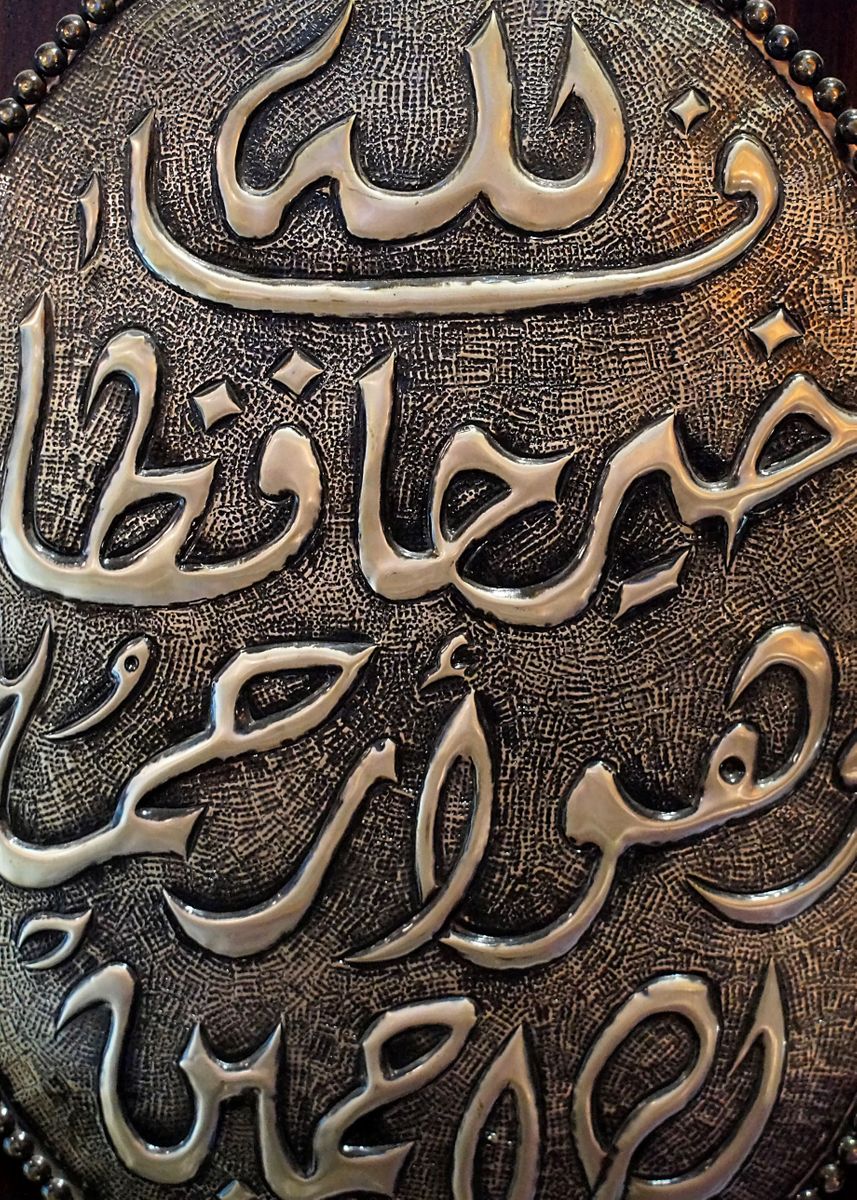 فالله
خير حافظا
وهو أرحم
الراحمين